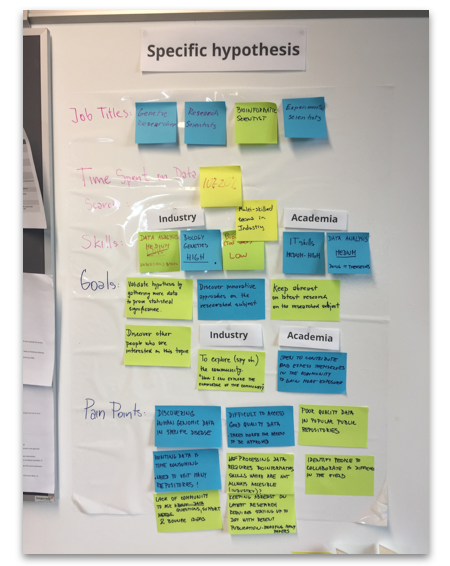 Specific hypothesis
Job Titles:
Genetic
Researcher
Research
Scientists
BIOINFORMATIC
SCIENTIST
Experimental
Scientists
Time Spent on Data
Search
10%-20%
Multi-skilled
teams in
Industry
Industry
Academia
Skills:
DATA ANALYSIS
MEDIUM
BIOLOGY
GENETICS
HIGH.
LOW
IT skills
MEDIUM-HIGH
DATA ANALYSIS
MEDIUM
Goals:
Validate hypothesis by
gathering more data
to prove statistical
significance.
Discover
approaches on the
researched subject
Keep abreast
on latest research
on the researched subject
Discover other
people who are
interested on this topic
Industry
Academia
To explore (spy on)
the community.
"How I can explore the
knowledge of the community"
OPEN TO CONTRIBUTE
AND EXPRESS THEMSELVES
IN THE COMMUNITY
TO GAIN MORE EXPOSURE
Pain Points:
DISCOVERING
HUMAN GENOMIC DATA
IN SPECIFIC DISEASE
DIFFICULT TO ACCESS
GOOD QUALITY DATA
TO BE APPROVED
POOR QUALITY DATA
IN POPULAR PUBLIC
REPOSITORIES.
DATA IS
TIME CONSUMING
NEED TO VISIT MANY
REPOSITORIES!
PROCESSING DATA
REQUIRES BIOINFORMATICS
SKILLS WHICH ARE NOT
ALWAYS ACCESSIBLE
(INDUSTRY)?
IDENTIFY PEOPLE TO
COLLABORATE
IN THE FIELD
LACK OF COMMUNITY
TO ASK
QUESTIONS, SUPPORT
& REVIEW IDEAS
KEEPING ABREAST ON
LATEST RESEARCH
REQUIRES STAYING UP TO
DAY WITH RECENT
PUBLICATION-READING MANY
PAPERS